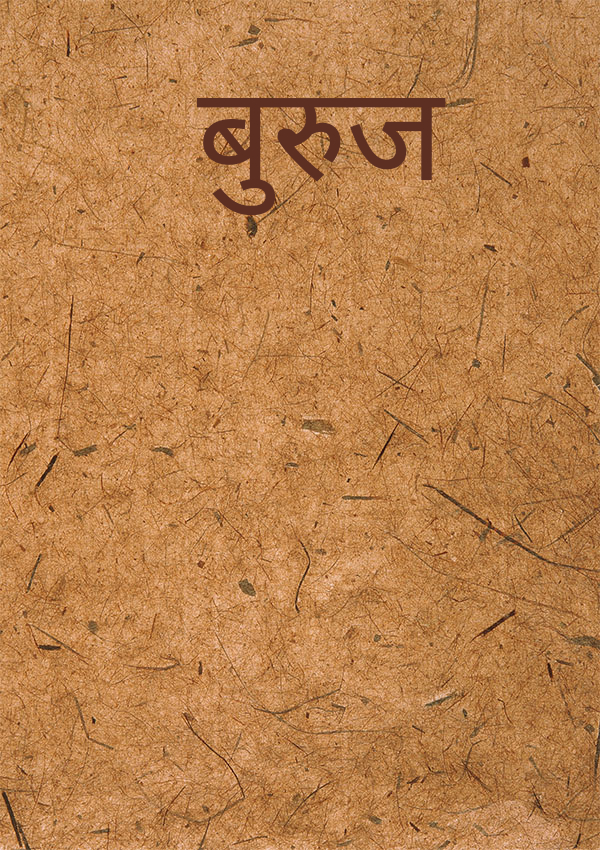 बुरुज